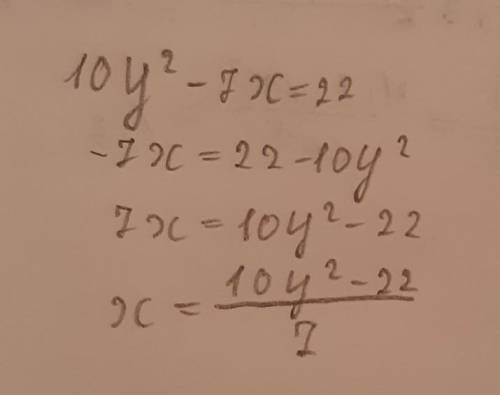 10y² - 7x = 22
-7x = 22 - 10y²
7x = 10y² - 22
x = \frac{10y² - 22}{7}